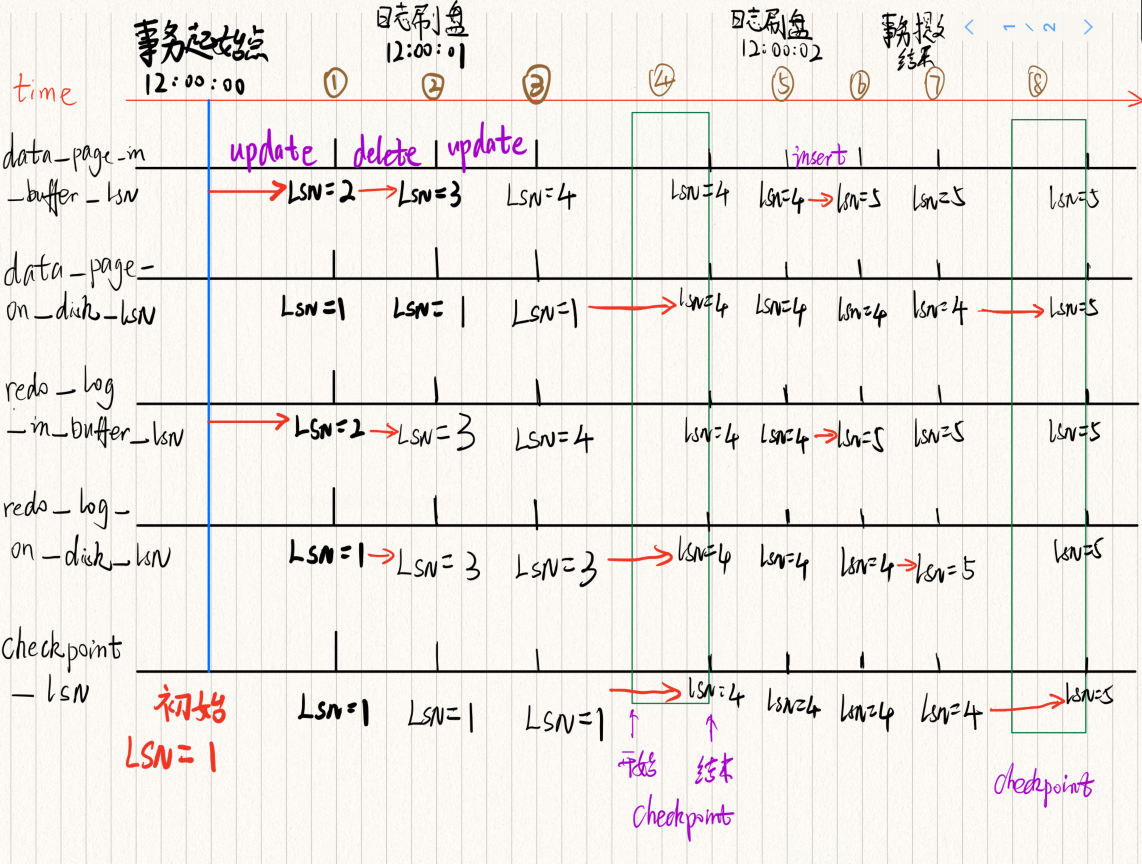 事务起始点 日志刷盘 日志刷盘 事务提交
12:00:00 12:00:01 12:00:02 结果
< 1 \ 2 >
time ① ② ③ ④ ⑤ ⑥ ⑦ ⑧
update delete update insert
data_page_in
_buffer_LSN LSN=2 LSN=3 LSN=4 LSN=4 LSN=4 LSN=5 LSN=5 LSN=5
data_page-
on_disk_LSN LSN=1 LSN=1 LSN=1 LSN=4 LSN=4 LSN=4 LSN=4 LSN=5
redo_log
_in_buffer_LSN LSN=2 LSN=3 LSN=4 LSN=4 LSN=4 LSN=5 LSN=5 LSN=5
redo_log_
on_disk_LSN LSN=1 LSN=3 LSN=3 LSN=4 LSN=4 LSN=4 LSN=5 LSN=5
checkpoint
_LSN LSN=1 LSN=1 LSN=1 LSN=4 LSN=4 LSN=4 LSN=4 LSN=5
初始
LSN=1
开始 结束
checkpoint
checkpoint